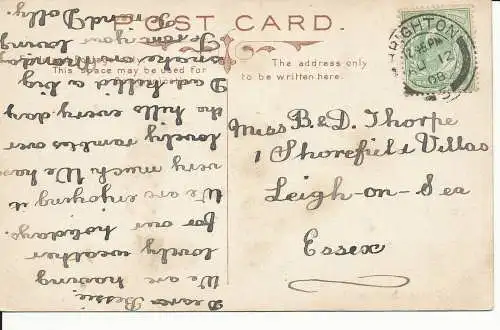 POST CARD.
This space may be used for
The address only
to be written here.
BRIGHTON
12
08
Miss B & D. Thorpe
1 Shorefield Villas
Leigh-on-Sea
Essex
Dearest Bessie,
We are having
lovely weather
for our holidays.
We are enjoying it
very much. We have
lovely rambles over
the hills every day
Dad killed a big
snake on
From your loving
friend Dolly.